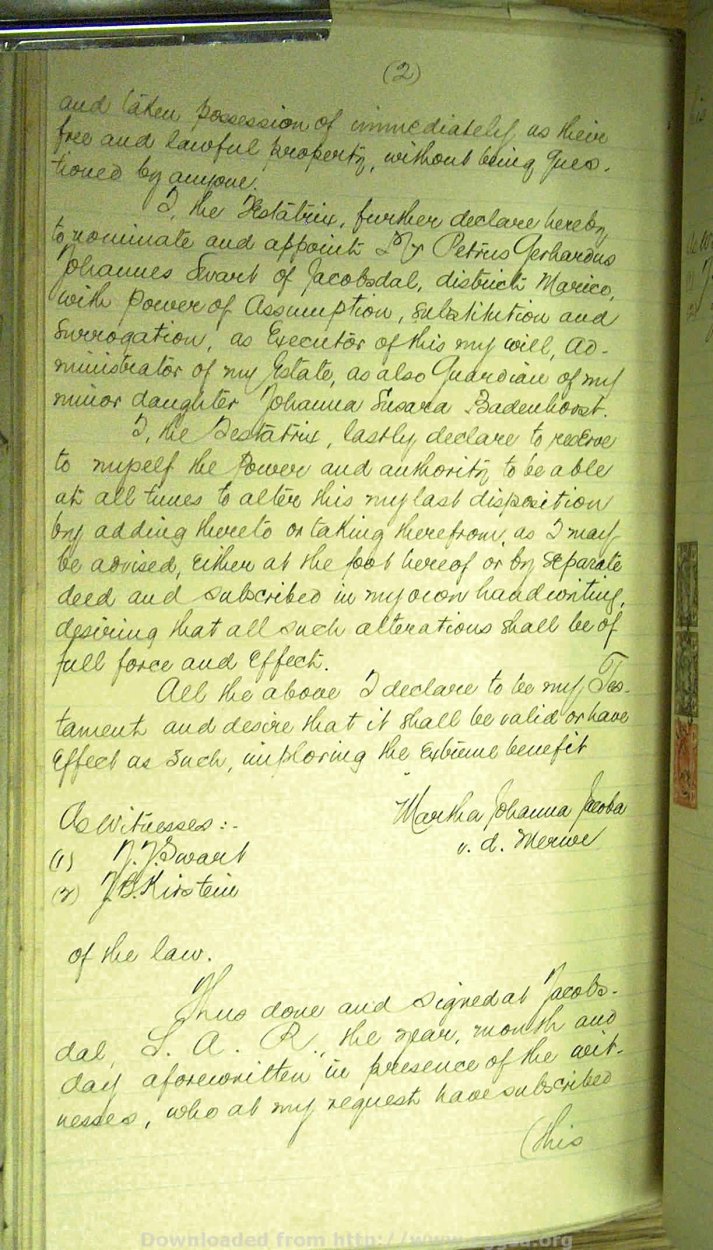 (2)
and taken possession of immediately as their
free and lawful property, without being ques-
tioned by anyone.
I, the Testatrix, further declare hereby
to nominate and appoint Mr Petrus Gerhardus
Johannes Swart of Jacobsdal, district Marico,
with Power of Assumption, Substitution and
Surrogation, as Executor of this my will, Ad-
ministrator of my Estate, as also Guardian of my
minor daughter Johanna Susara Badenhorst.
I, the Testatrix, lastly declare to reserve
to myself the Power and authority to be able
at all times to alter this my last disposition
by adding thereto or taking therefrom, as I may
be advised, either at the foot hereof or by separate
deed and subscribed in my own handwriting,
desiring that all such alterations shall be of
full force and effect.
All the above I declare to be my Tes-
tament and desire that it shall be valid or have
Effect as Such, imploring the Extreme benefit
Martha Johanna Jacoba
v. d. Merwe
As Witnesses:-
(1) J. J. Swart
(2) J. B. Kirstein
of the law.
Thus done and signed at Jacobs-
dal, S. A. R., the year, month and
day aforewritten in presence of the wit-
nesses, who at my request have subscribed
(this
Downloaded from http://www.
.org